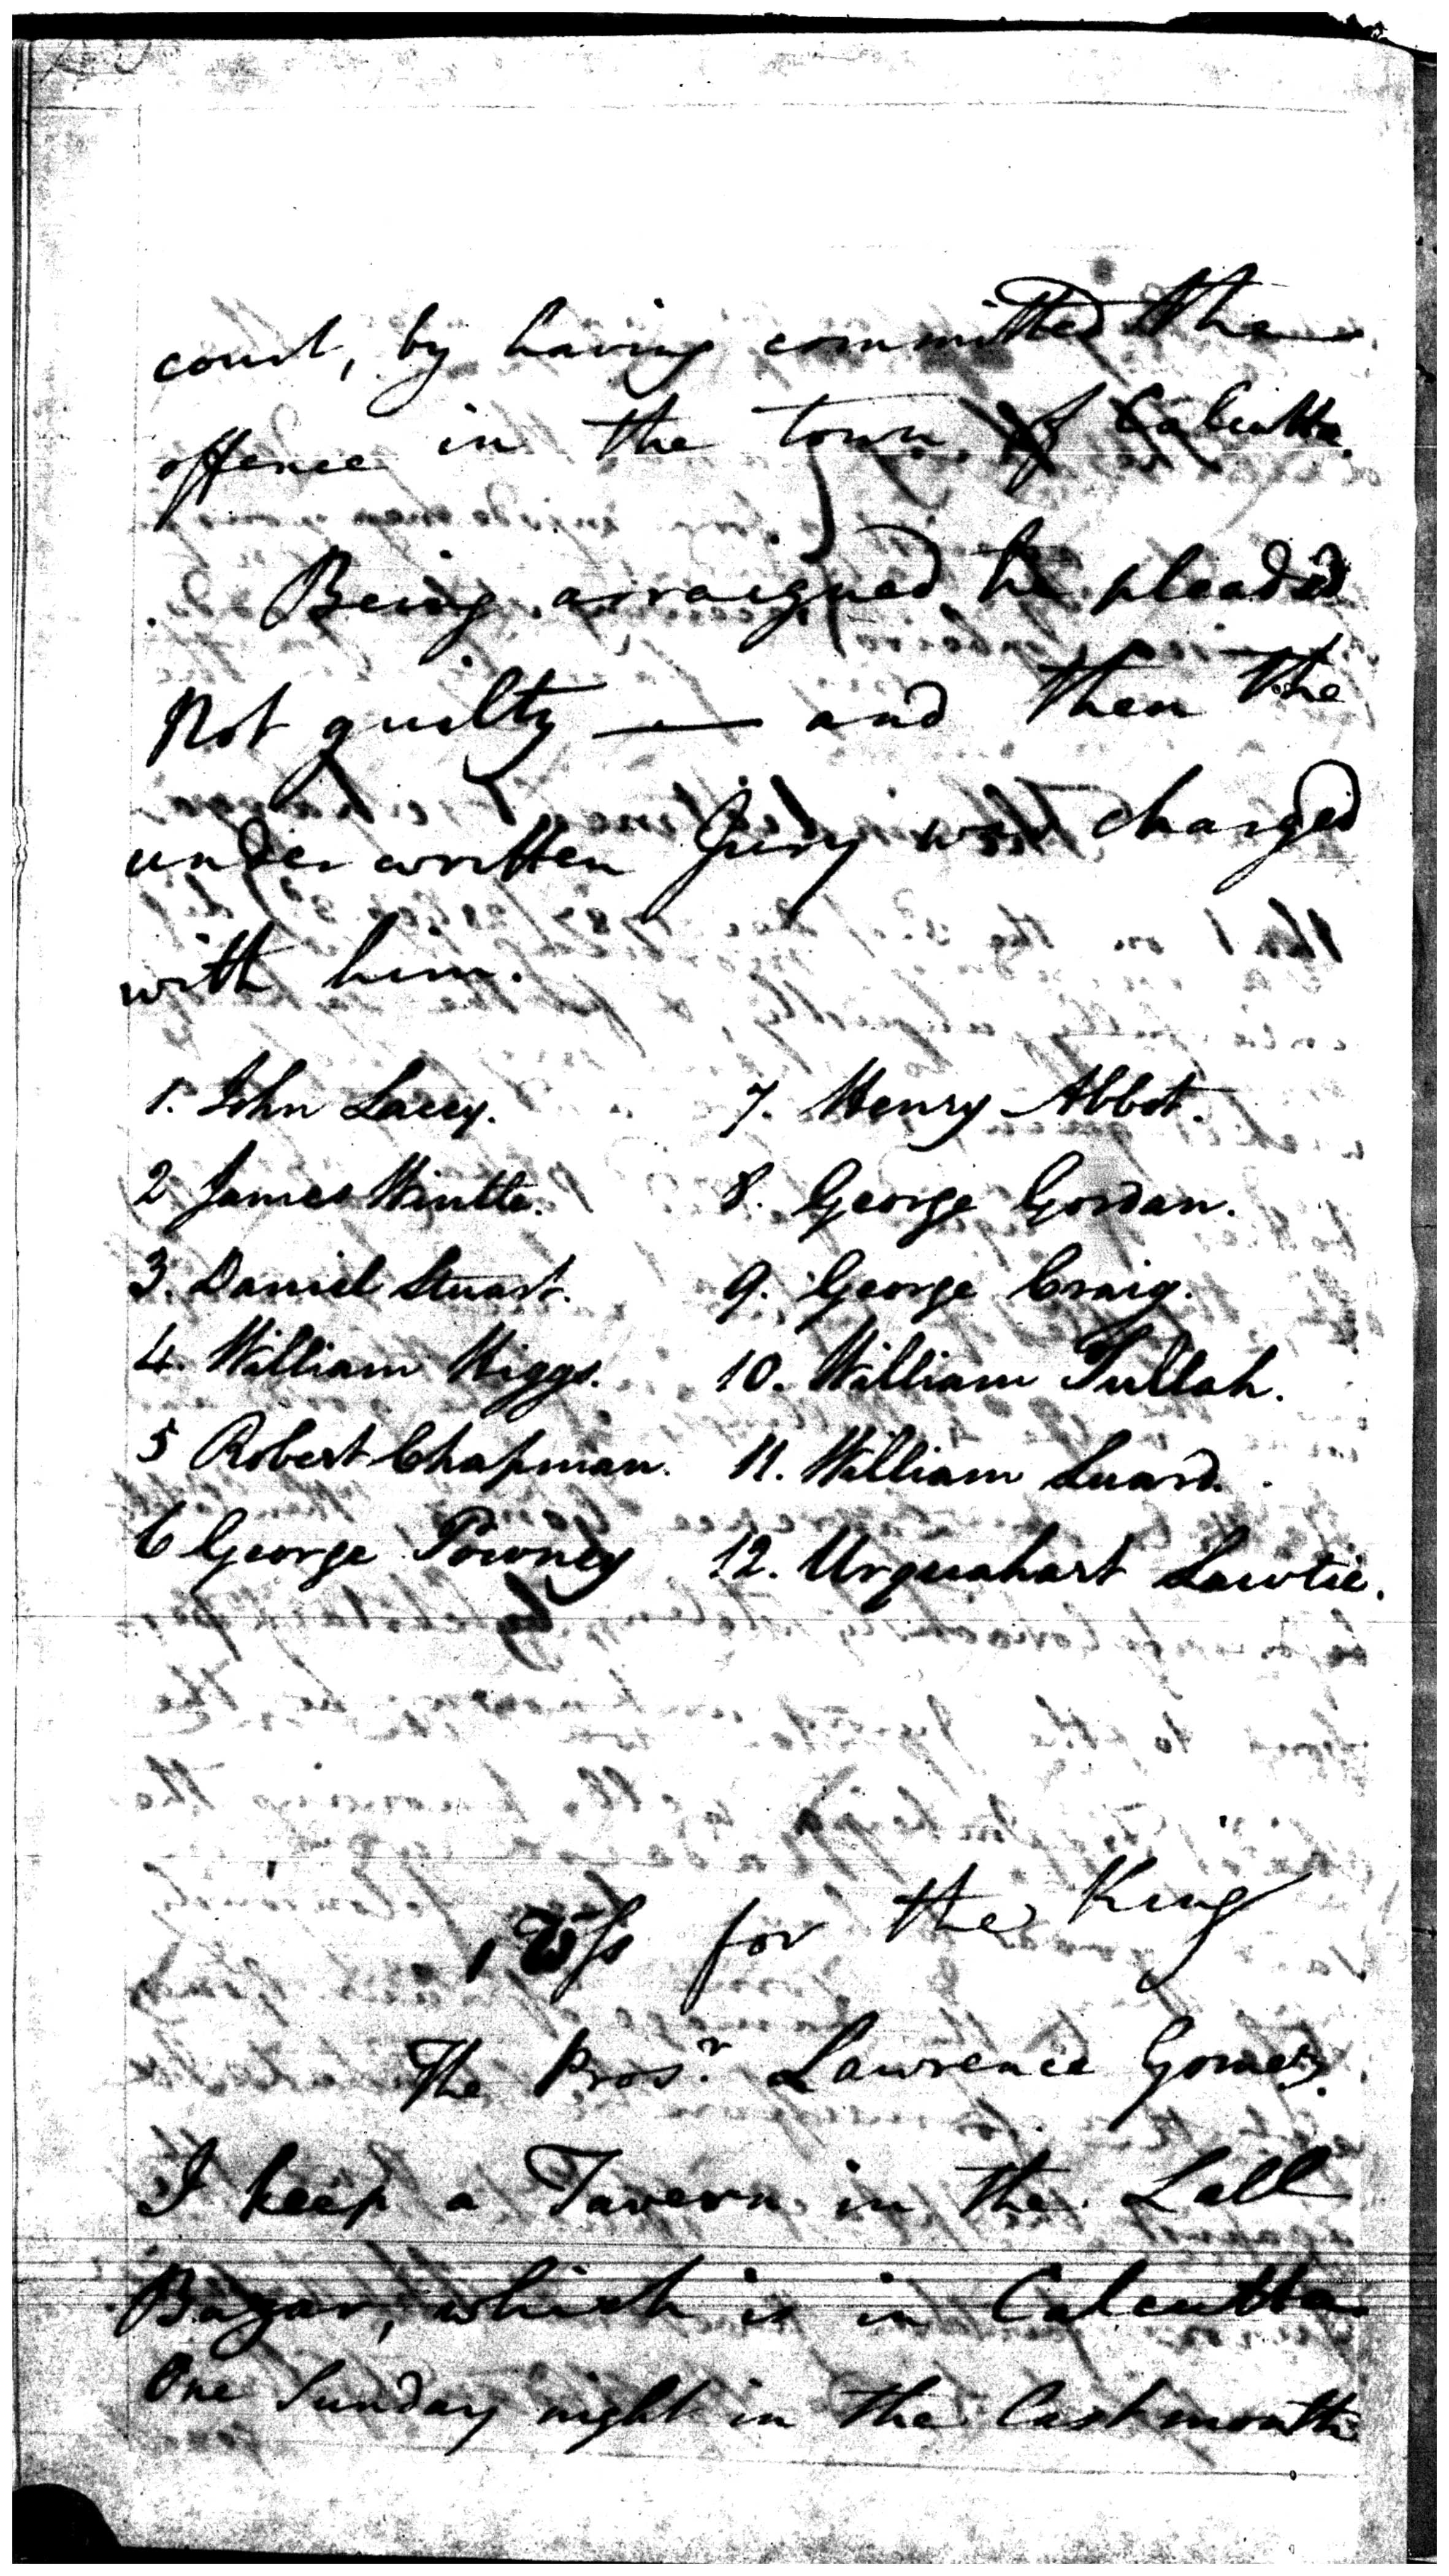 court, by having committed the
offence in the town of Calcutta.
Being arraigned he pleaded
Not guilty — and then the
under written Jury was charged
with him.
1. John Lacey. 7. Henry Abbot.
2 James Wintle. 8. George Gordan.
3. Daniel Stuart. 9. George Craig.
4. William Higgs. 10. William Tullah.
5 Robert Chapman. 11. William Luard.
6 George Powney 12. Urquahart Lawtie.
for the King
The Prosr. Lawrence Gomez.
I keep a Tavern in the Lall
Bazar, which is in Calcutta.
One Sunday night in the last month